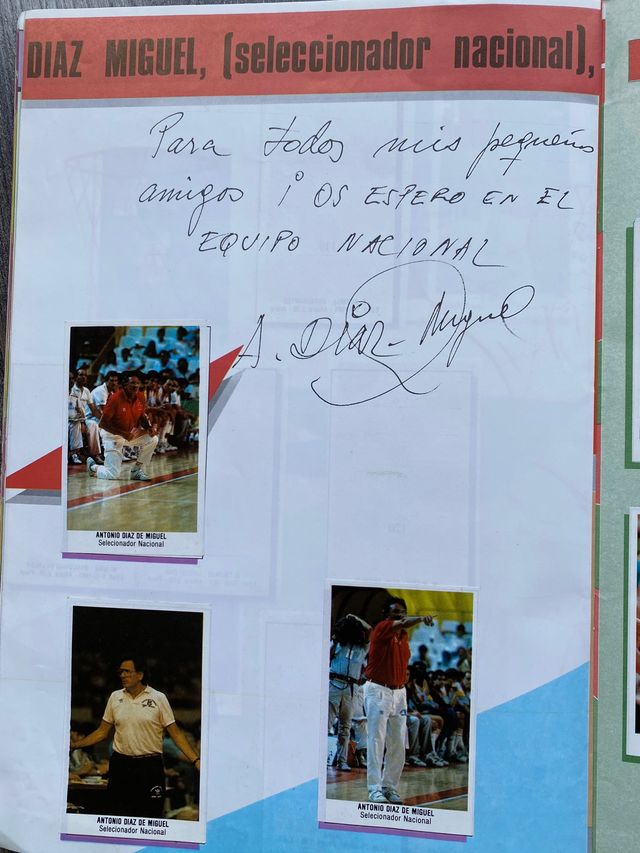 DIAZ MIGUEL, (seleccionador nacional),
Para todos mis pequeños
amigos ¡º OS ESPERO EN EL
EQUIPO NACIONAL
A. Díaz-Miguel
ANTONIO DIAZ DE MIGUEL
Selecionador Nacional
ANTONIO DIAZ DE MIGUEL
Selecionador Nacional
ANTONIO DIAZ DE MIGUEL
Selecionador Nacional